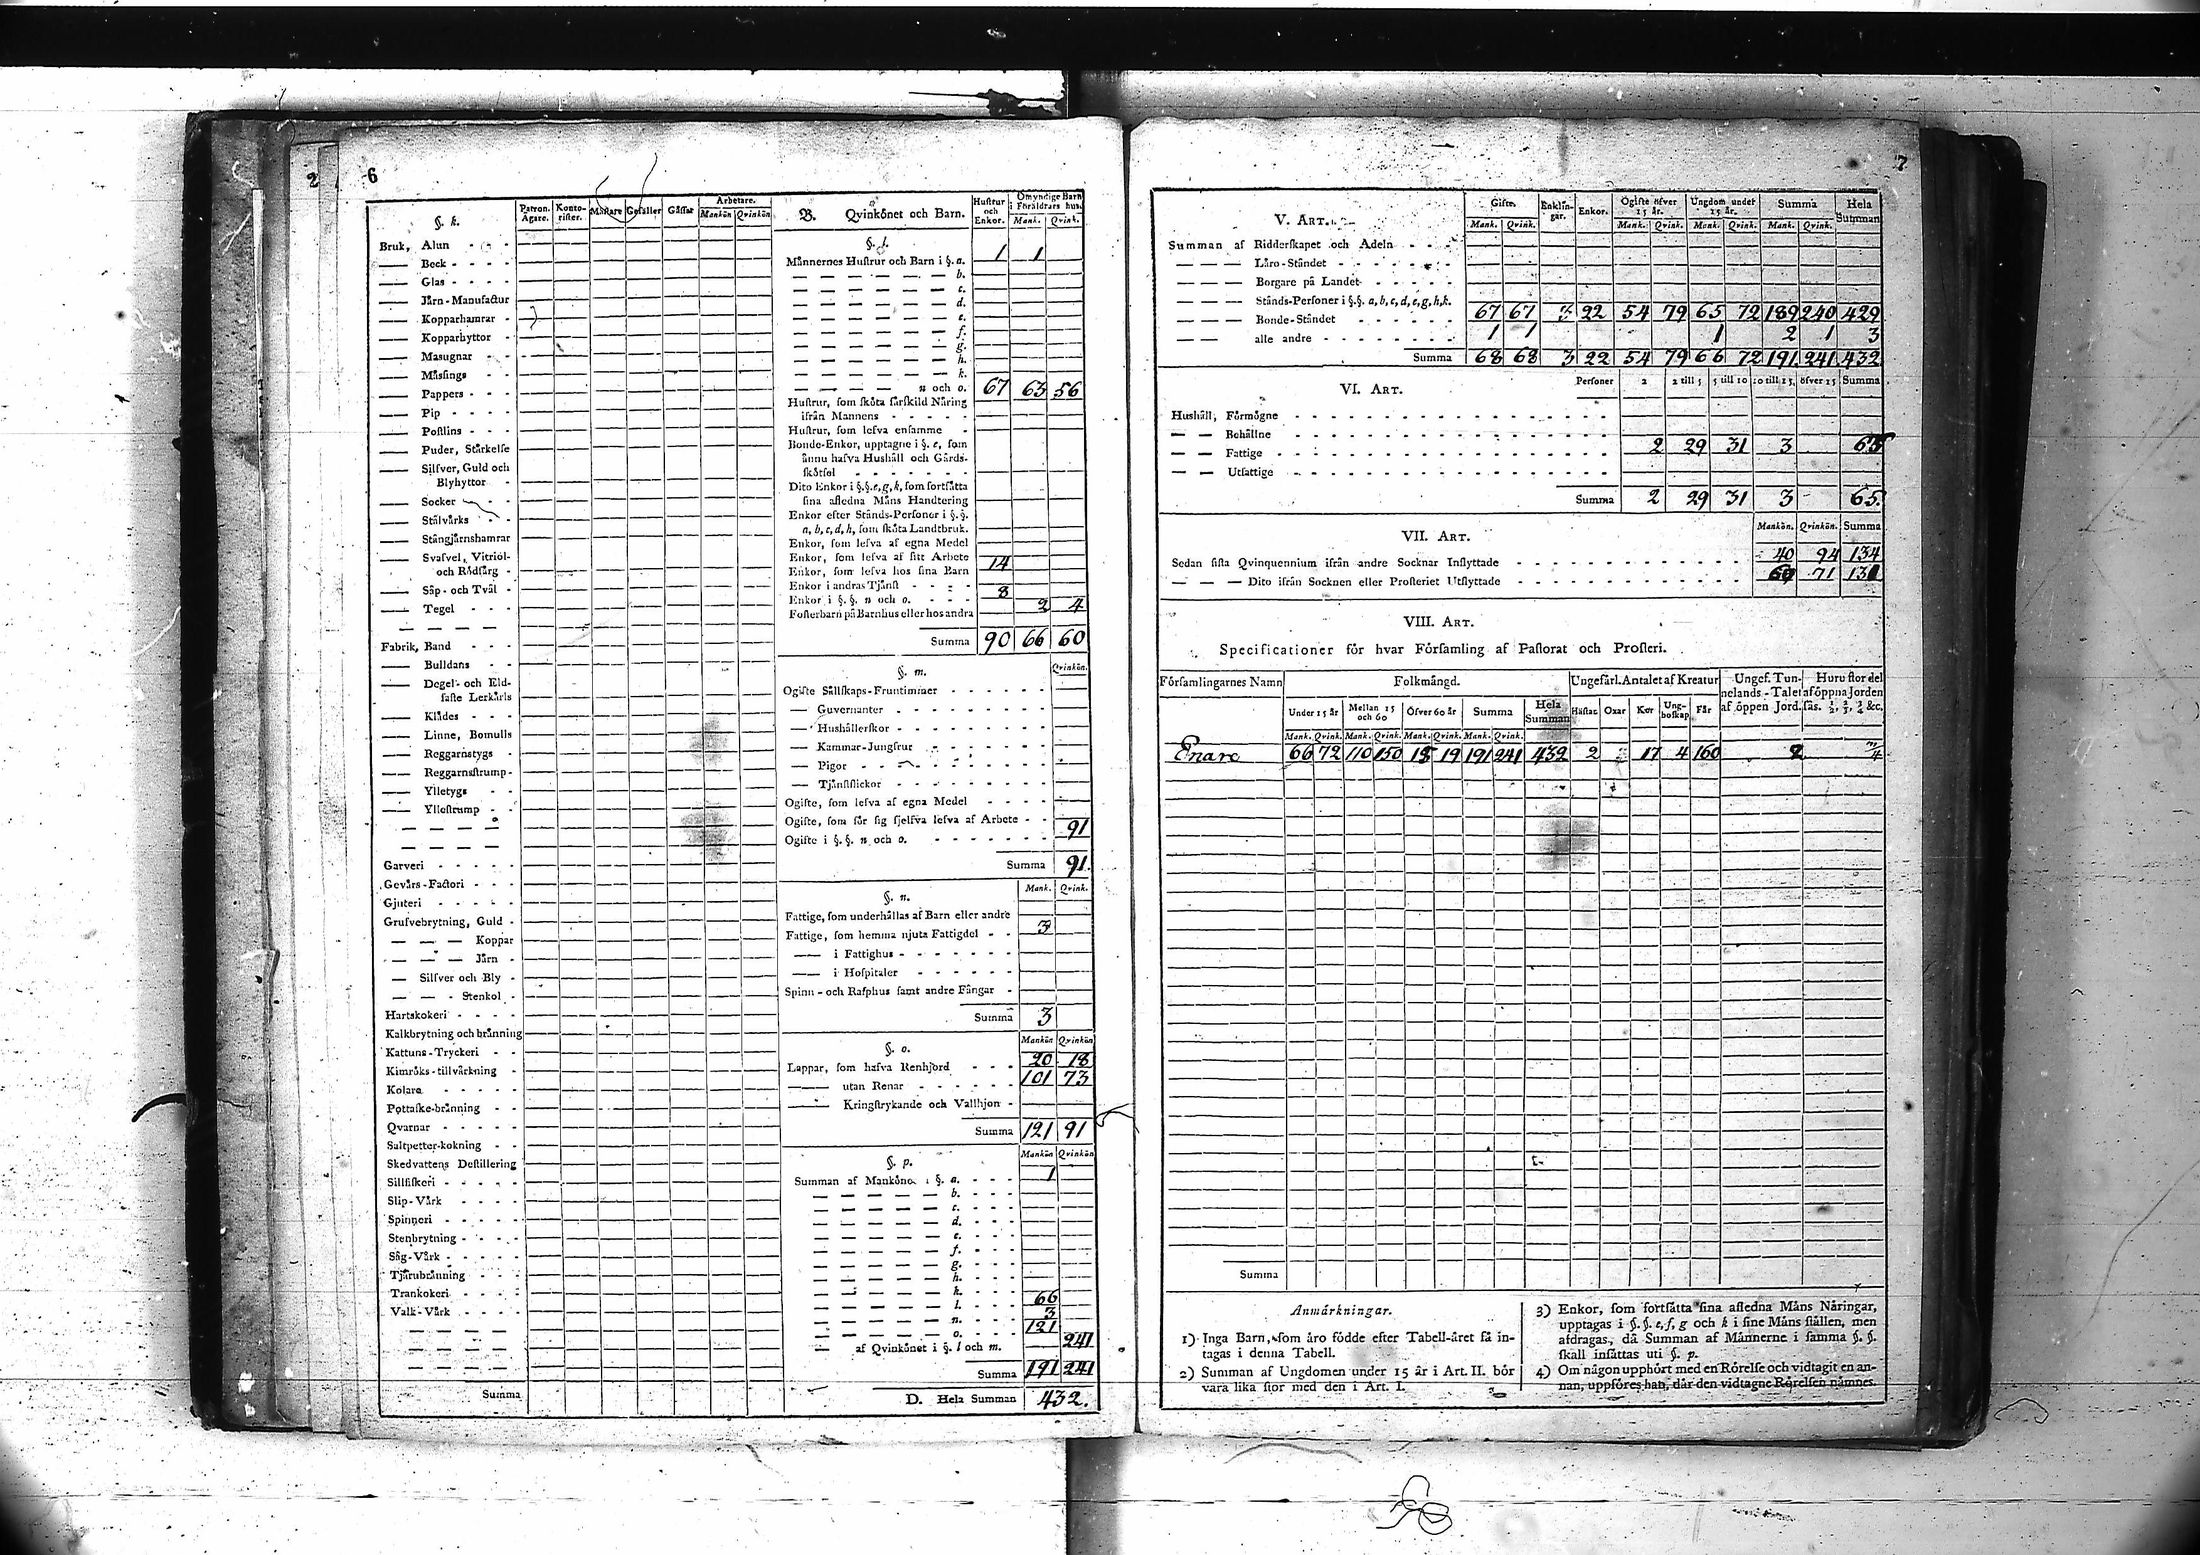 6
§. k.
Patron. Ägare.
Konto-rister.
Mästare
Gesäller
Gåssar
Arbetare.
Mankön Qvinkön
Bruk, Alun
Beck
Glas
Järn-Manufactur
Kopparhamrar
Kopparhyttor
Masugnar
Mässings
Pappers
Pip
Postlins
Puder, Stärkelse
Silfver, Guld och
Blyhyttor
Socker
Stålvärks
Stångjärnshamrar
Svafvel, Vitriol-
och Rödfärg
Såp- och Tvål
Tegel
Fabrik, Band
Bulldans
Degel- och Eld-
faste Lerkärls
Klädes
Linne, Bomulls
Reggarnstygs
Reggarnsstrump-
Ylletygs
Yllestrump
Garveri
Gevärs-Factori
Gjuteri
Grufvebrytning, Guld
Koppar
Järn
Silfver och Bly
Stenkol
Hartskokeri
Kalkbrytning och bränning
Kattuns-Tryckeri
Kimröks-tillvärkning
Kolare
Pottaske-bränning
Qvarnar
Saltpetter-kokning
Skedvattens Destillering
Sillfiskeri
Slip-Värk
Spinneri
Stenbrytning
Såg-Värk
Tjärubränning
Trankokeri
Valk-Värk
Summa
B. Qvinkönet och Barn.
Hustrur och Enkor.
Omyndige Barn i Föräldrars hus.
Mank. Qvink.
§. l.
Männernes Hustrur och Barn i §. a. 1 1
b.
c.
d.
e.
f.
g.
h.
k.
n och o. 67 63 56
Hustrur, som sköta särskild Näring
ifrån Mannens
Hustrur, som lefva ensamme
Bonde-Enkor, upptagne i §. e, som
ännu hafva Hushåll och Gårds-
skötsel
Dito Enkor i §.§. e, g, k, som fortsätta
sina afledna Mäns Handtering
Enkor efter Stånds-Personer i §.§.
a, b, c, d, h, som sköta Landtbruk.
Enkor, som lefva af egna Medel
Enkor, som lefva af sitt Arbete
Enkor, som lefva hos sina Barn 14
Enkor i andras Tjänst
Enkor i §.§. n och o. 8
Fosterbarn på Barnhus eller hos andra 2 4
Summa 90 66 60
§. m.
Qvinkön.
Ogifte Sällskaps-Fruntimmer
Guvernanter
Hushållerskor
Kammar-Jungfrur
Pigor
Tjänstflickor
Ogifte, som lefva af egna Medel
Ogifte, som för sig sjelfva lefva af Arbete
Ogifte i §.§. n och o. 91
Summa 91.
§. n.
Mank. Qvink.
Fattige, som underhållas af Barn eller andre
Fattige, som hemma njuta Fattigdel 3
i Fattighus
i Hospitaler
Spinn- och Rasphus samt andre Fångar
Summa 3
§. o.
Mankön Qvinkön
Lappar, som hafva Renhjord 20 18
utan Renar 101 73
Kringstrykande och Vallhjon
Summa 121 91
§. p.
Mankön Qvinkön
Summan af Mankönet i §. a. 1
b.
c.
d.
e.
f.
g.
h.
k.
l. 66
n. 3
o. 121
af Qvinkönet i §. l och m. 241
Summa 191 241
D. Hela Summan 432.
7
V. ART.
Gifte.
Enklin-gar.
Enkor.
Ogifte öfver 15 år.
Ungdom under 15 år.
Summa
Hela Summan
Mank. Qvink. Mank. Qvink. Mank. Qvink. Mank. Qvink.
Summan af Ridderskapet och Adeln
Läro-Ståndet
Borgare på Landet
Stånds-Personer i §.§. a, b, c, d, e, g, h, k.
Bonde-Ståndet 67 67 3 22 54 79 65 72 189 240 429
alle andre 1 1 1 2 1 3
Summa 68 68 3 22 54 79 66 72 191 241 432
VI. ART.
Personer 2 2 till 5 5 till 10 10 till 15, öfver 15 Summa
Hushåll, Förmögne
Behållne
Fattige 2 29 31 3 65
Utfattige
Summa 2 29 31 3 65.
VII. ART.
Mankön. Qvinkön. Summa
Sedan sista Qvinquennium ifrån andre Socknar Inflyttade 40 94 134
Dito ifrån Socknen eller Prosteriet Utflyttade 60 71 131
VIII. ART.
Specificationer för hvar Församling af Pastorat och Prosteri.
Församlingarnes Namn
Folkmängd.
Ungefärl. Antalet af Kreatur
Ungef. Tunnelands-Talet af öppen Jord.
Huru stor del af öppna Jorden sås. 1/2, 2/3, 3/4 &c.
Under 15 år
Mellan 15 och 60
Öfver 60 år
Summa
Hela Summan
Hästar Oxar Kor Ung-boskap Får
Mank. Qvink. Mank. Qvink. Mank. Qvink. Mank. Qvink.
Enare 66 72 110 150 15 19 191 241 432 2 17 4 160 2
Summa
Anmärkningar.
1) Inga Barn, som äro födde efter Tabell-året få in-
tagas i denna Tabell.
2) Summan af Ungdomen under 15 år i Art. II. bör
vara lika stor med den i Art. I.
3) Enkor, som fortsätta sina afledna Mäns Näringar,
upptagas i §.§. e, f, g och k i sine Mäns ställen, men
afdragas, då Summan af Männerne i samma §.§.
skall insättas uti §. p.
4) Om någon upphört med en Rörelse och vidtagit en an-
nan, uppföres han, där den vidtagne Rörelsen nämnes.